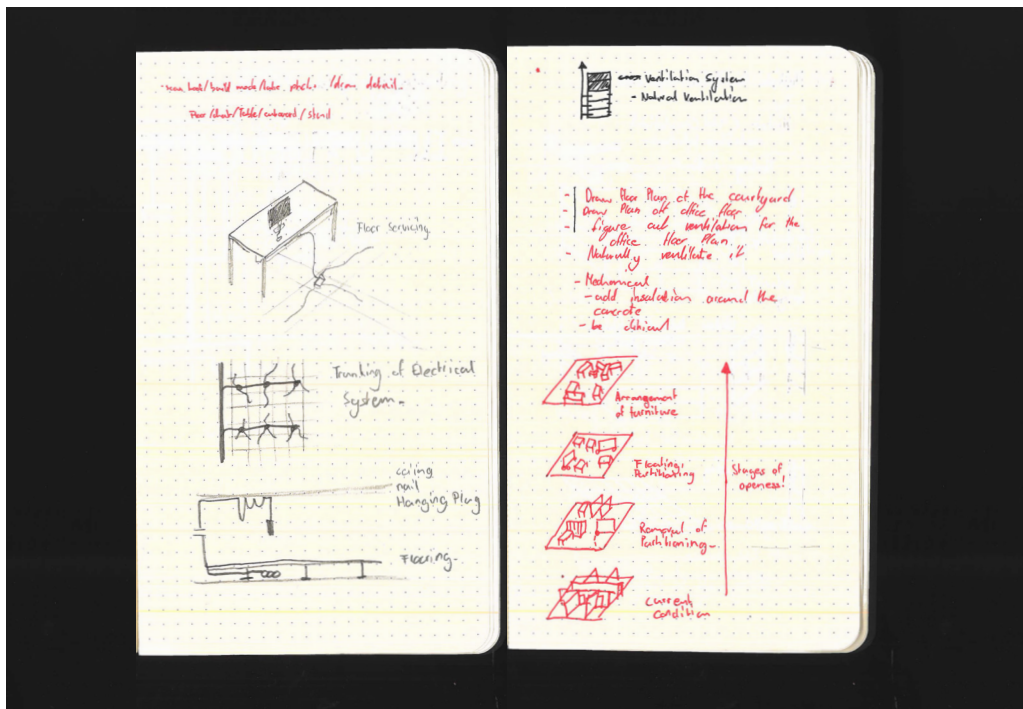 scan book/build model/take photo /draw detail.
Door/chair/Table/cutboard/stand
Floor Servicing
Trunking of Electrical
System.
ceiling
nail
Hanging Plug
Flooring.
ventilation System
- Natural Ventilation
- Draw Floor Plan of the courtyard
- Draw Plan off office floor
- figure out ventilation for the
office floor Plan
- Naturally ventilate it
- Mechanical
- add insulation around the
concrete
- be
Arrangement
of furniture
Floating
Partitioning
Removal of
Partitioning
Current
condition
Stages of
openess!